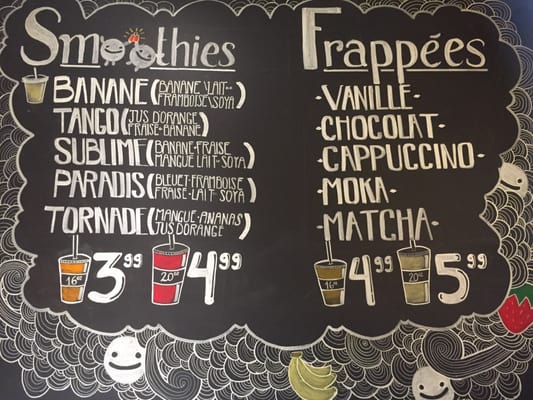 Smoothies
BANANE (BANANE LAIT-
FRAMBOISE\SOYA)
TANGO (JUS DORANGE
FRAISE-BANANE)
SUBLIME (BANANE-FRAISE
MANGUE LAIT-SOYA)
PARADIS (BLEUET-FRAMBOISE
FRAISE-LAIT-SOYA)
TORNADE (MANGUE-ANANAS
JUS DORANGE)
16oz 3.99 20oz 4.99
Frappées
·VANILLE·
·CHOCOLAT·
·CAPPUCCINO·
·MOKA·
·MATCHA·
16oz 4.99 20oz 5.99